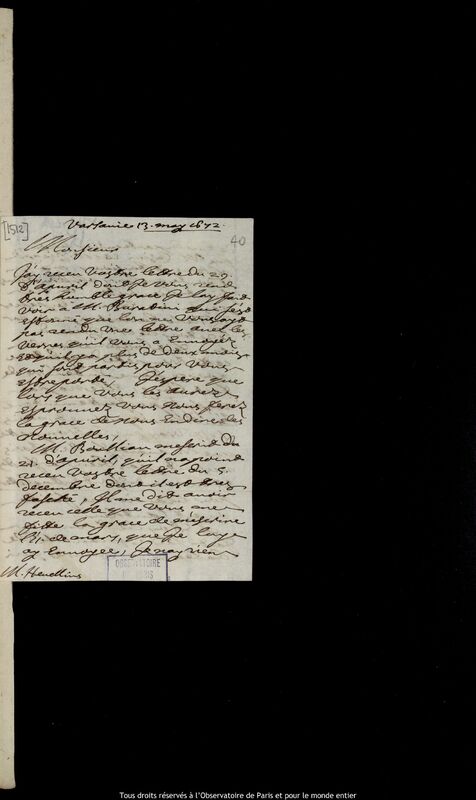 Varsauie 13. may 1672.
[1512]
40
Monsieur
Jay receu vostre lettre du 29
d'apvril dont je vous rend
tres humble grace je lay fait
voir a M. Buratini qui sest
estonné que lon ne vous ayt
pas rendu une lettre avec les
verres qu'il vous a Envoyez
il y a plus de deux mois
qui sont partis pour vous
estre porté J'espere que
lors que vous les aurez
esprouvez vous nous ferez
la grace de nous En dire des
Nouvelles,
M. Boulliau mescrit du
21. d'apvril, qu'il na point
receu vostre lettre du 5.
decembre dont il est tres
fasché, Il me dit avoir
receu celle que vous me
fitte la grace de mescrire
de mars, que je luy
ay Envoyée, Je nay rien
M. Hevellius
OBSERVATOIRE
DE PARIS
Tous droits réservés à l'Observatoire de Paris et pour le monde entier